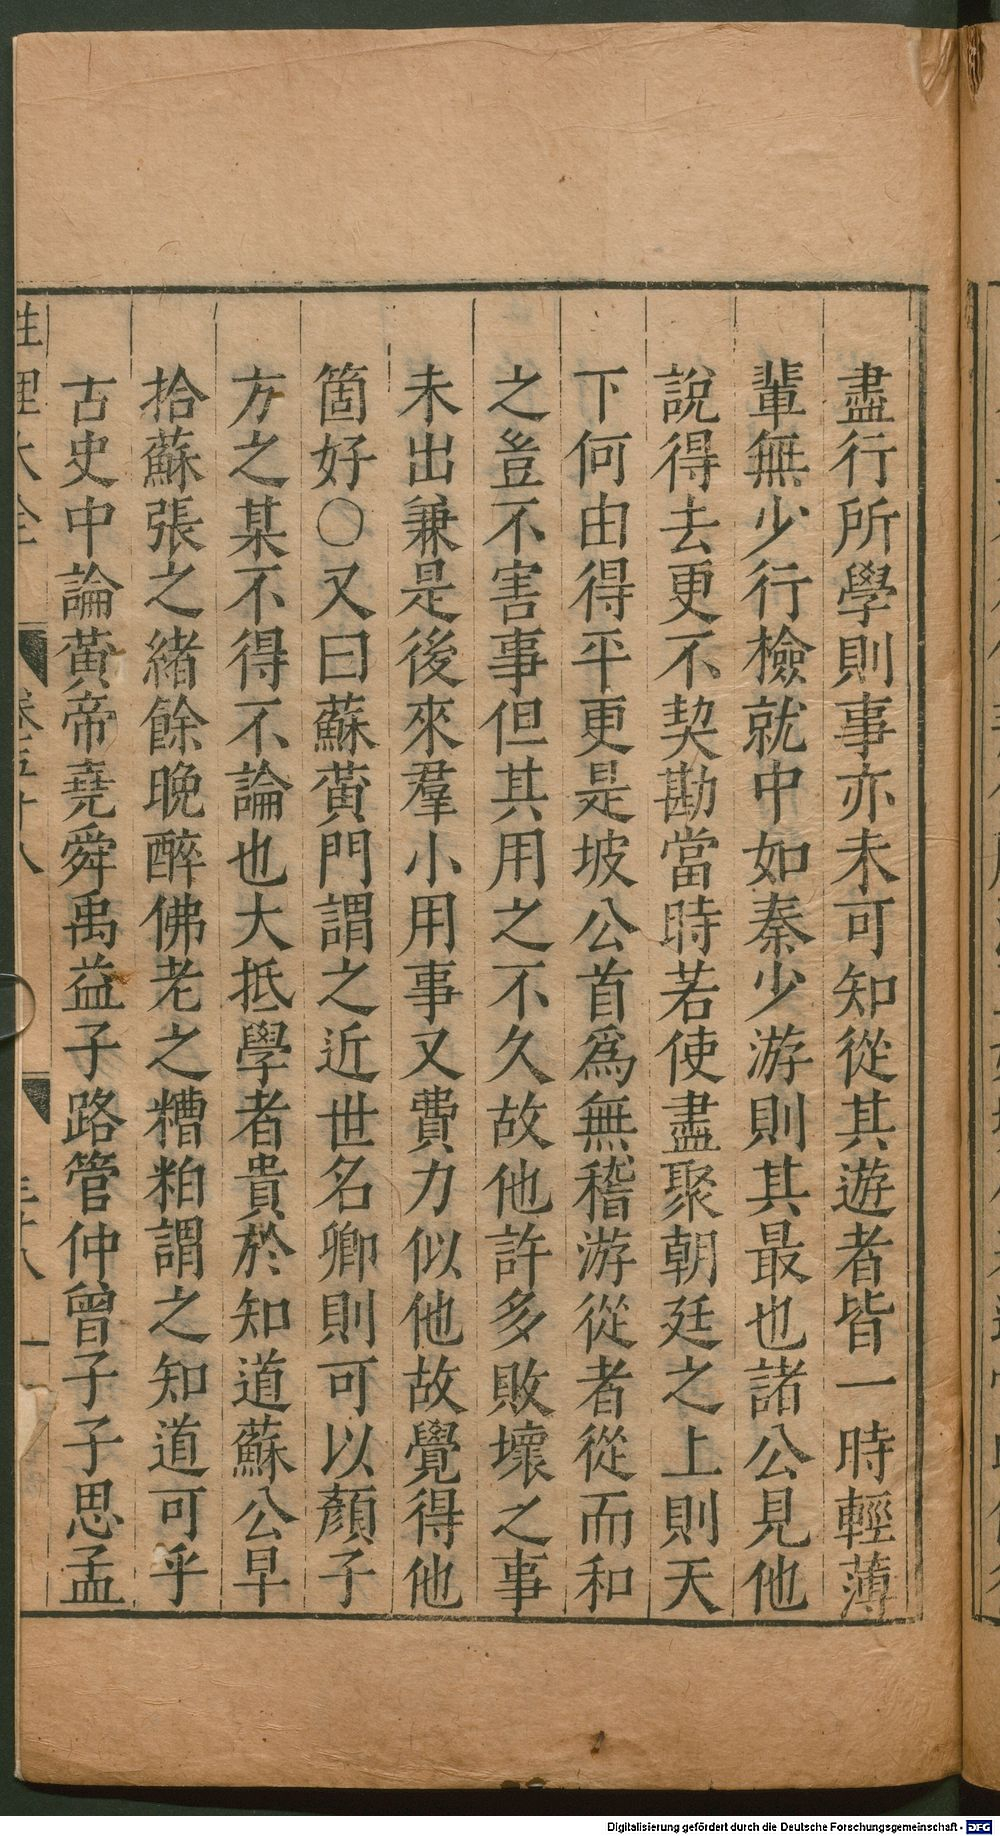 盡行所學則事亦未可知從其遊者皆一時輕薄
輩無少行檢就中如秦少游則其最也諸公見他
說得去更不契勘當時若使盡聚朝廷之上則天
下何由得平更是坡公首爲無稽游從者從而和
之豈不害事但其用之不久故他許多敗壞之事
未出兼是後來羣小用事又費力似他故覺得他
箇好○又曰蘇黃門謂之近世名卿則可以顏子
方之某不得不論也大抵學者貴於知道蘇公早
拾蘇張之緒餘晚醉佛老之糟粕謂之知道可乎
古史中論黃帝堯舜禹益子路管仲曾子子思孟
性理大全 卷五十八 三十八
Digitalisierung gefördert durch die Deutsche Forschungsgemeinschaft - DFG